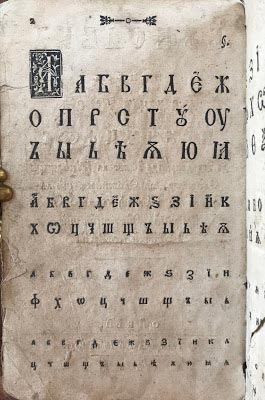 2
А Б В Г Д Є̈ Ж
О П Р С Т Ꙋ́ ОУ
Ъ Ы Ь Ѣ Ѧ Ю Ꙗ
А Б В Г Д Є Ж Ѕ З Ї Й К
Х Ѿ Ц Ч Ш Щ Ъ Ы Ь Ѣ Ѧ
А Б В Г Д Е Ж Ѕ З Ї И
Ф Х Ѡ Ц Ч Ш Щ Ъ Ы Ь
А Б В Г Д Е Ж Ѕ З Ї И К Л
Ц Ч Ш Щ Ъ Ы Ь Ѣ